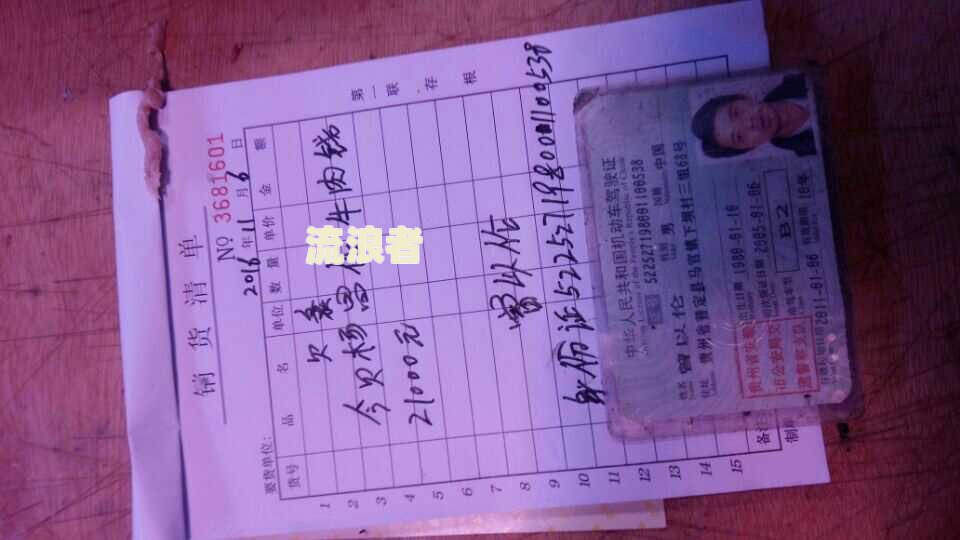 销货清单
No 3681601
2016年11月6日
第一联 存根
要货单位:
货号 品名 单位 数量 单价 金额
欠条
今欠杨昌 牛肉钱
21000元
曾以伦
身份证522527198001100538
1
2
3
4
5
6
7
8
9
10
11
12
13
14
15
备注
流浪者
中华人民共和国机动车驾驶证
Driving License of the People's Republic of China
证号 522527198001100538
姓名 曾以伦 性别 男 国籍 中国
住址 贵州省普定县马官镇下坝村三组68号
出生日期 1980-01-10
初次领证日期 2005-01-06
准驾车型 B2
有效起始日期 2011-01-06 有效期限 10年
贵州省安顺
市公安局交
通警察支队